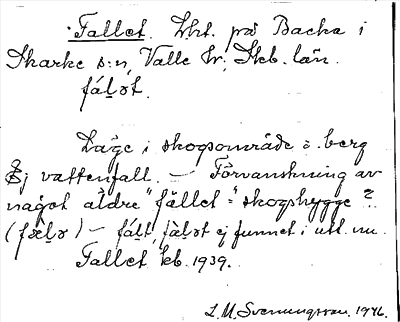 Fallet. Lht. på Backa i
Skarke s:n, Valle hr; Skb. län.
fál̥ət.
Läge i skogsområde å berg
Ej vattenfall. — Förvanskning av
något äldre "fället = "skogshygge"?
(fæl̥ə) — fál̥t, fàl̥ət ej funnet i utt. nu.
Fallet, kb. 1939.
L.M. Svenungsson. 1946.